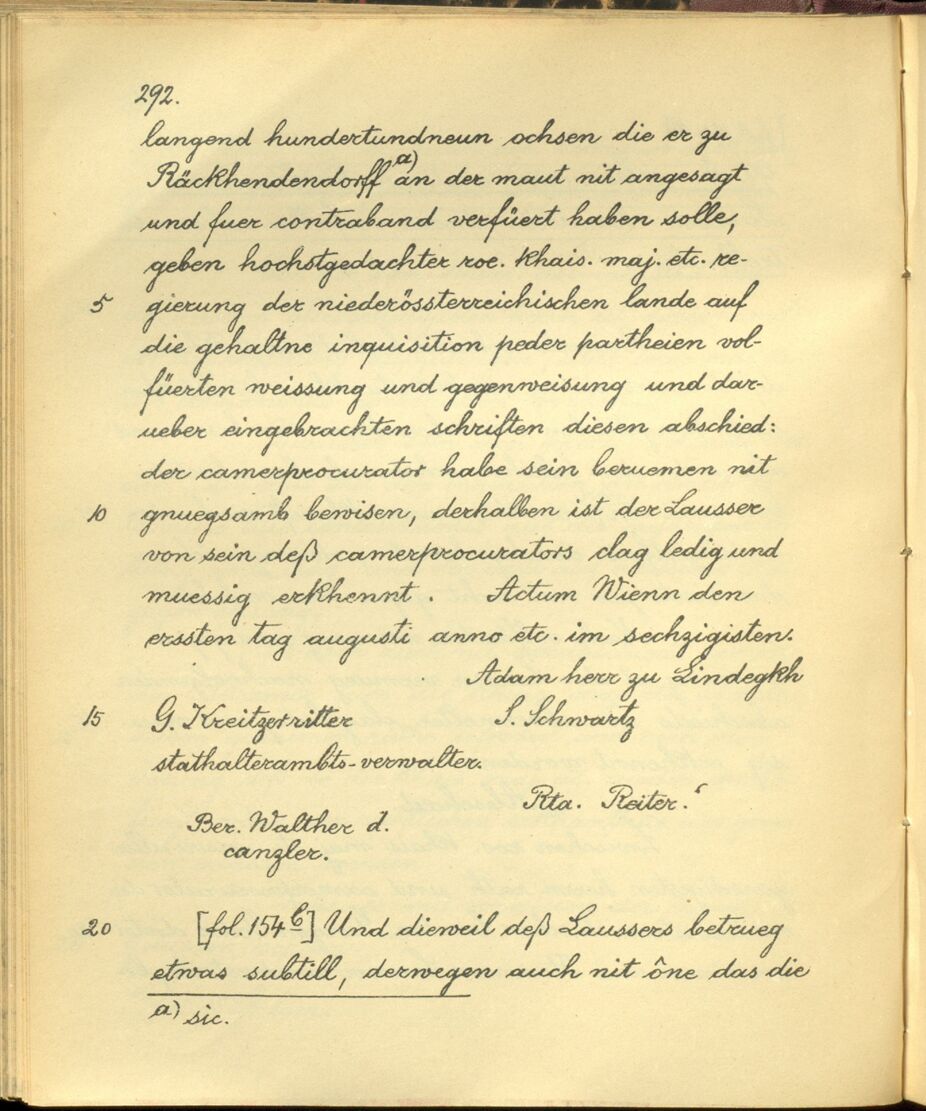 292.
langend hundertundneun ochsen die er zu
Räckhendendorff a) an der maut nit angesagt
und fuer contraband verfüert haben solle,
geben hochstgedachter roe. khais. maj. etc. re-
5 gierung der niederössterreichischen lande auf
die gehaltne inquisition peder partheien vol-
füerten weissung und gegenweisung und dar-
ueber eingebrachten schriften diesen abschied:
der camerprocurator habe sein beruemen nit
10 gnuegsamb bewisen, derhalben ist der Lausser
von sein deß camerprocurators clag ledig und
muessig erkhennt. Actum Wienn den
erssten tag augusti anno etc. im sechzigisten.
Adam herr zu Lindegkh
15 G. Kreitzerritter S. Schwartz
stathalterambts-verwalter.
Rta. Reiter.
Ber. Walther d.
canzler.
20 [fol. 154 b] Und dieweil deß Laussers betrueg
etwas subtill, derwegen auch nit ône das die
a) sic.